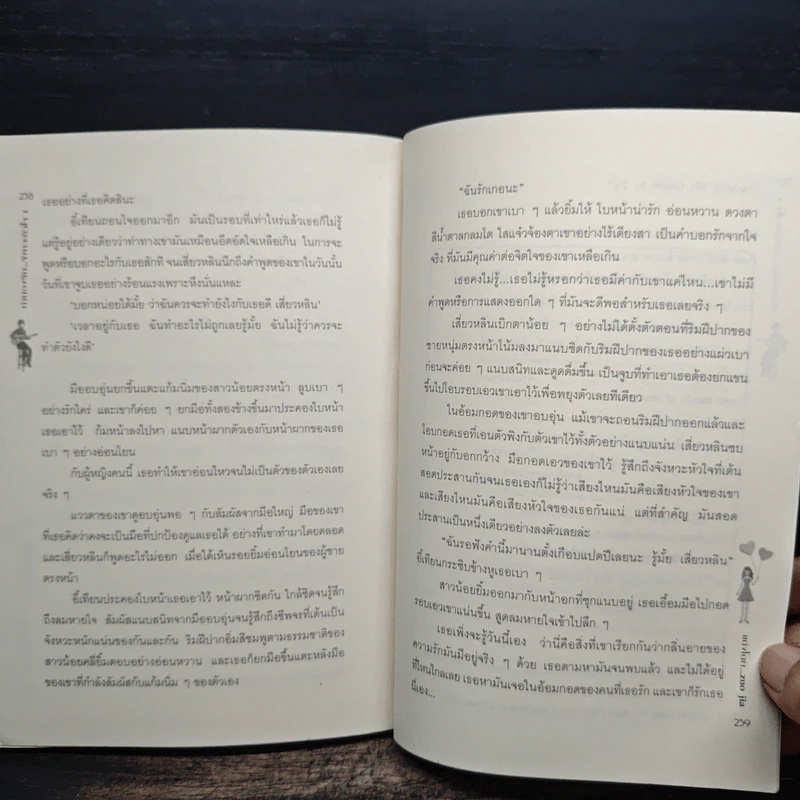 258
เธออย่างที่เธอคิดสินะ
อี้เทียนถอนใจออกมาอีก มันเป็นรอบที่เท่าไหร่แล้วเธอก็ไม่รู้
แต่รู้อยู่อย่างเดียวว่าท่าทางเขามันเหมือนอึดอัดใจเหลือเกิน ในการจะ
พูดหรือบอกอะไรกับเธอสักที จนเสี่ยวหลินนึกถึงคำพูดของเขาในวันนั้น
วันที่เขาจูบเธออย่างร้อนแรงเพราะหึงนั่นแหละ
‘บอกหน่อยได้มั้ย ว่าฉันควรจะทำยังไงกับเธอดี เสี่ยวหลิน’
‘เวลาอยู่กับเธอ ฉันทำอะไรไม่ถูกเลยรู้มั้ย ฉันไม่รู้ว่าควรจะ
ทำตัวยังไงดี’
มืออบอุ่นยกขึ้นแตะแก้มนิ่มของสาวน้อยตรงหน้า ลูบเบา ๆ
อย่างรักใคร่ และเขาก็ค่อย ๆ ยกมือทั้งสองข้างขึ้นมาประคองใบหน้า
เธอเอาไว้ ก้มหน้าลงไปหา แนบหน้าผากตัวเองกับหน้าผากของเธอ
เบา ๆ อย่างอ่อนโยน
กับผู้หญิงคนนี้ เธอทำให้เขาอ่อนไหวจนไม่เป็นตัวของตัวเองเลย
จริง ๆ
แววตาของเขาดูอบอุ่นพอ ๆ กับสัมผัสจากมือใหญ่ มือของเขา
ที่เธอคิดว่าคงจะเป็นมือที่ปกป้องดูแลเธอได้ อย่างที่เขาทำมาโดยตลอด
และเสี่ยวหลินก็พูดอะไรไม่ออก เมื่อได้เห็นรอยยิ้มอ่อนโยนของผู้ชาย
ตรงหน้า
อี้เทียนประคองใบหน้าเธอเอาไว้ หน้าผากชิดกัน ใกล้ชิดจนรู้สึก
ถึงลมหายใจ สัมผัสแนบสนิทจากมืออบอุ่นจนรู้สึกถึงชีพจรที่เต้นเป็น
จังหวะหนักแน่นของกันและกัน ริมฝีปากอิ่มสีชมพูตามธรรมชาติของ
สาวน้อยคลี่ยิ้มตอบอย่างอ่อนหวาน และเธอก็ยกมือขึ้นแตะหลังมือ
ของเขาที่กำลังสัมผัสกับแก้มนิ่ม ๆ ของตัวเอง
“ฉันรักเกอนะ”
เธอบอกเขาเบา ๆ แล้วยิ้มให้ ใบหน้าน่ารัก อ่อนหวาน ดวงตา
สีน้ำตาลกลมโต ใสแจ๋วจ้องตาเขาอย่างไร้เดียงสา เป็นคำบอกรักจากใจ
จริง ที่มันมีคุณค่าต่อจิตใจของเขาเหลือเกิน
เธอคงไม่รู้...เธอไม่รู้หรอกว่าเธอมีค่ากับเขาแค่ไหน...เขาไม่มี
คำพูดหรือการแสดงออกใด ๆ ที่มันจะดีพอสำหรับเธอเลยจริง ๆ
เสี่ยวหลินเบิกตาน้อย ๆ อย่างไม่ได้ตั้งตัวตอนที่ริมฝีปากของ
ชายหนุ่มตรงหน้าโน้มลงมาแนบชิดกับริมฝีปากของเธออย่างแผ่วเบา
ก่อนจะค่อย ๆ แนบสนิทและดูดดื่มขึ้น เป็นจูบที่ทำเอาเธอต้องยกแขน
ขึ้นไปโอบรอบเอวเขาเอาไว้เพื่อพยุงตัวเลยทีเดียว
ในอ้อมกอดของเขาอบอุ่น แม้เขาจะถอนริมฝีปากออกแล้วและ
โอบกอดเธอที่เอนตัวพิงกับตัวเขาไว้ทั้งตัวอย่างแนบแน่น เสี่ยวหลินซบ
หน้าอยู่กับอกกว้าง มือกอดเอวของเขาไว้ รู้สึกถึงจังหวะหัวใจที่เต้น
สอดประสานกันจนเธอเองก็ไม่รู้ว่าเสียงไหนมันคือเสียงหัวใจของเขา
และเสียงไหนมันคือเสียงหัวใจของเธอกันแน่ แต่ที่สำคัญ มันสอด
ประสานเป็นหนึ่งเดียวอย่างลงตัวเลยล่ะ
“ฉันรอฟังคำนี้มานานตั้งเกือบแปดปีเลยนะ รู้มั้ย เสี่ยวหลิน”
อี้เทียนกระซิบข้างหูเธอเบา ๆ
สาวน้อยยิ้มออกมากับหน้าอกที่ซุกแนบอยู่ เธอเอื้อมมือไปกอด
รอบเอวเขาแน่นขึ้น สูดลมหายใจเข้าไปลึก ๆ
เธอเพิ่งจะรู้วันนี้เอง ว่านี่คือสิ่งที่เขาเรียกกันว่ากลิ่นอายของ
ความรักมันมีอยู่จริง ๆ ด้วย เธอตามหามันจนพบแล้ว และไม่ได้อยู่
ที่ไหนไกลเลย เธอหามันเจอในอ้อมกอดของคนที่เธอรัก และเขาก็รักเธอ
นี่เอง...
259